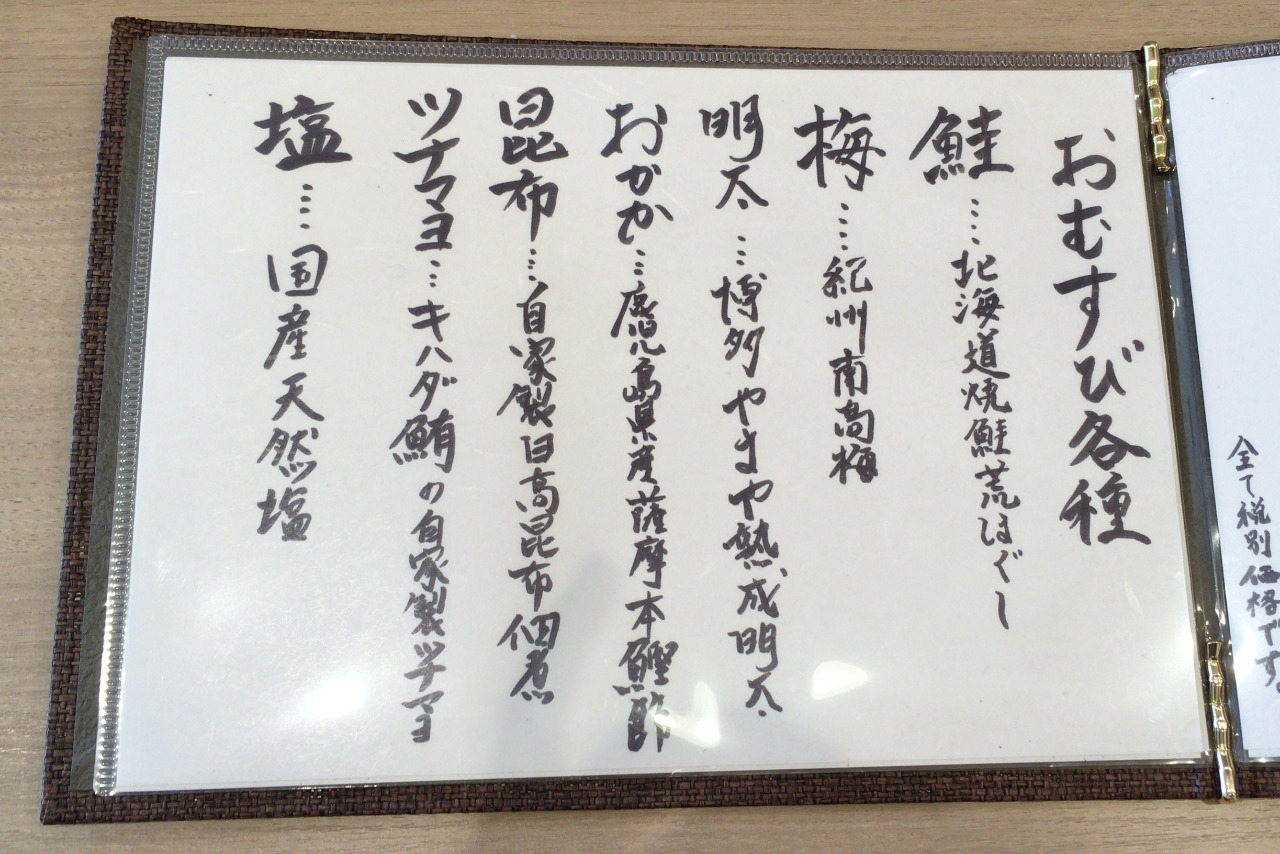 全て税別価格です。
おむすび各種
鮭…北海道焼鮭荒ほぐし
梅…紀州南高梅
明太…博多やまや熟成明太
おかか…鹿児島県産薩摩本鰹節
昆布…自家製日高昆布佃煮
ツナマヨ…キハダ鮪の自家製ツナマヨ
塩…国産天然塩